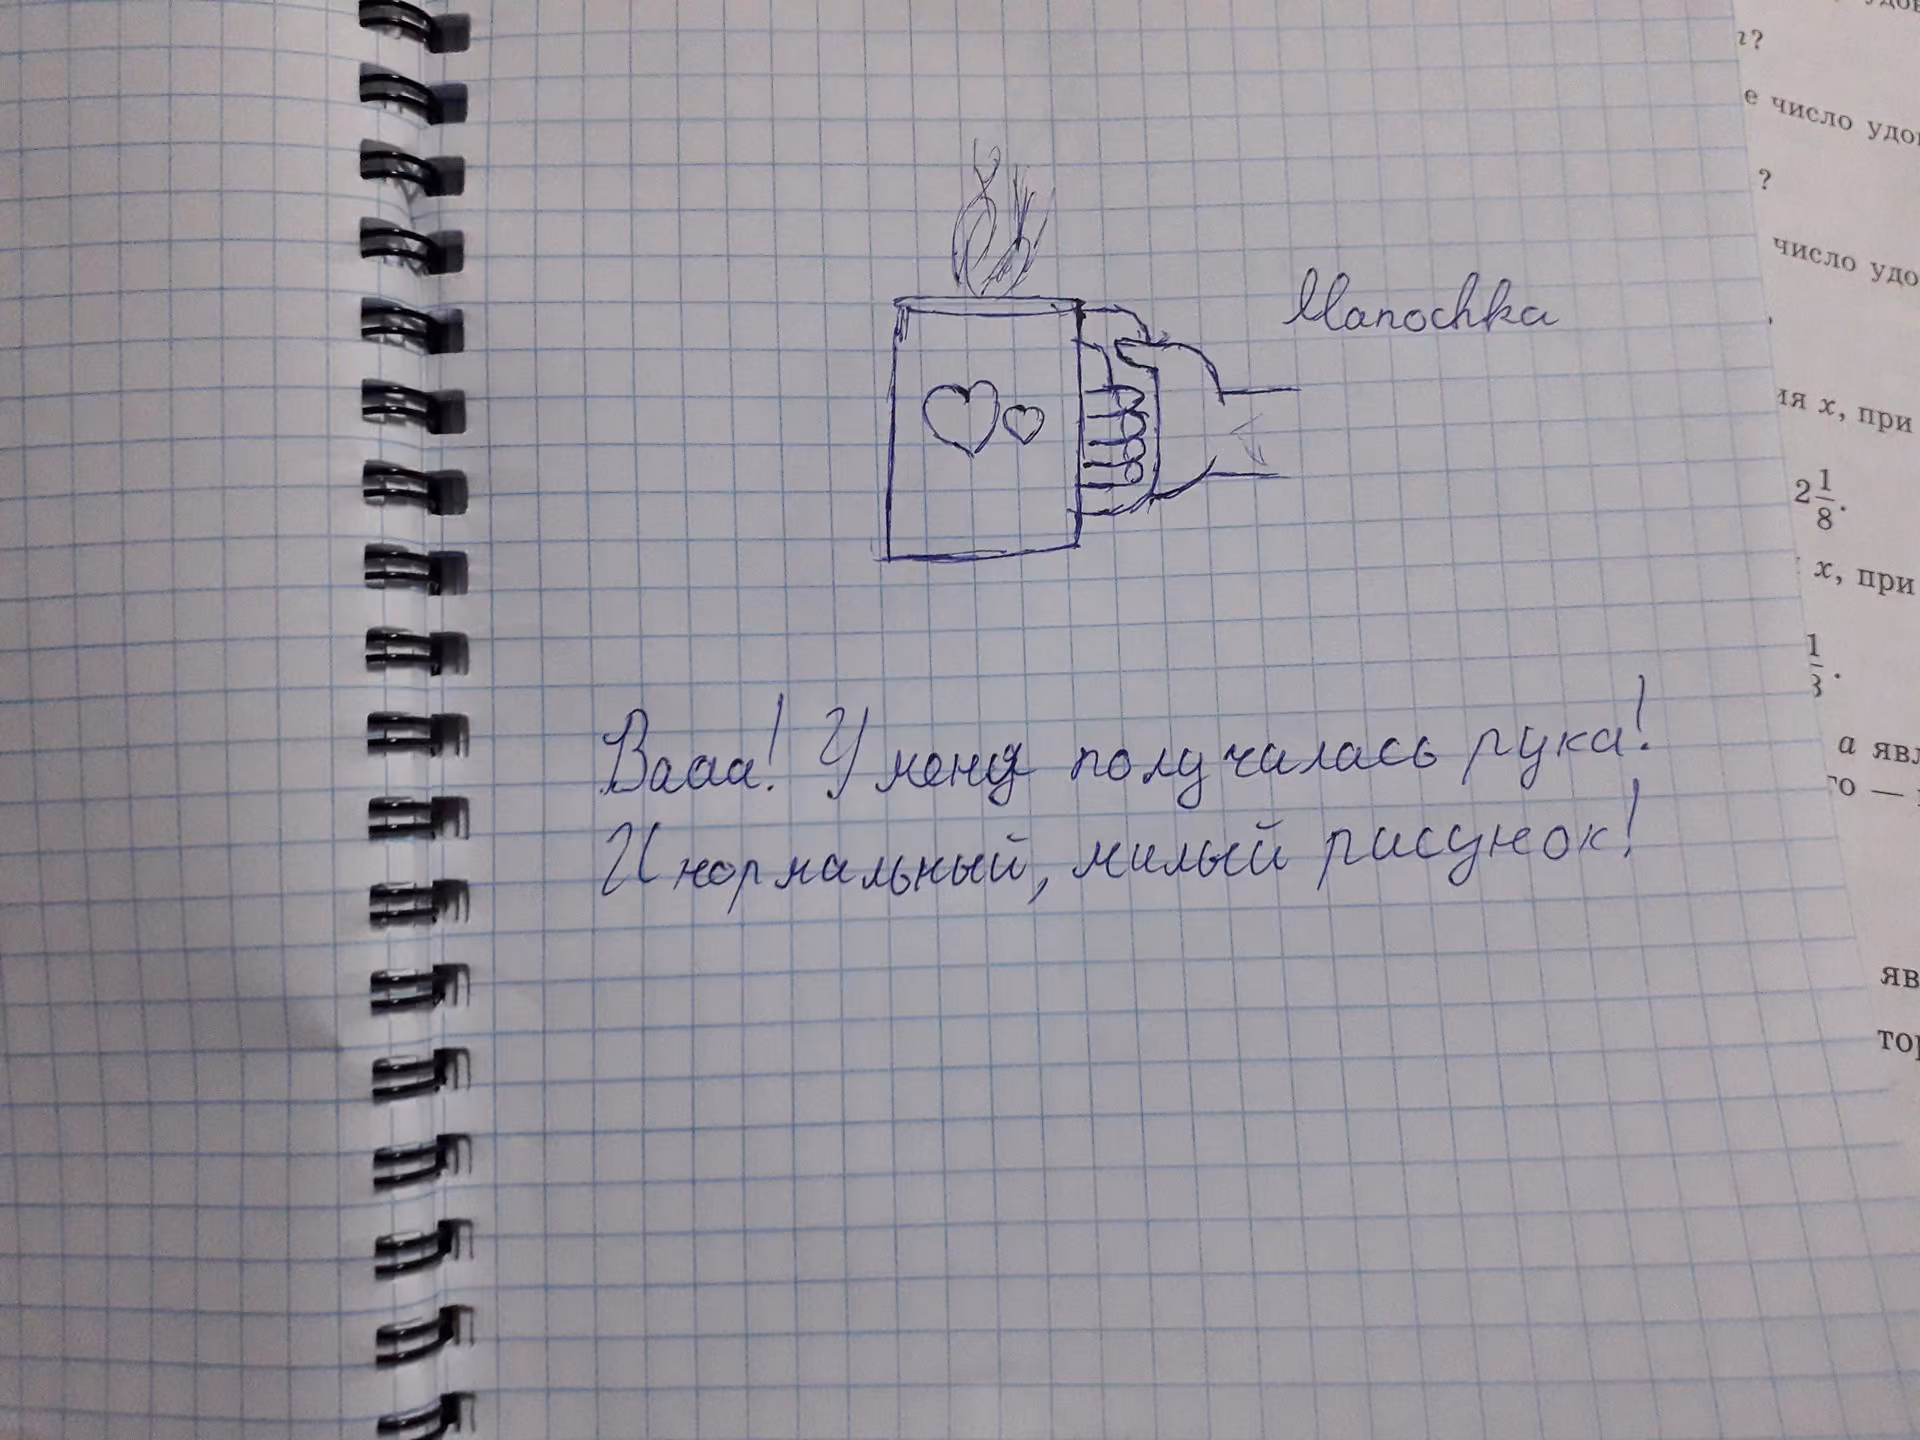 Manochka
Вааа! У меня получилась рука!
И нормальный, милый рисунок!
?
е число удов
?
число удо
ия x, при
2 1/8.
x, при
1/3.
а явл
го —
яв
тор